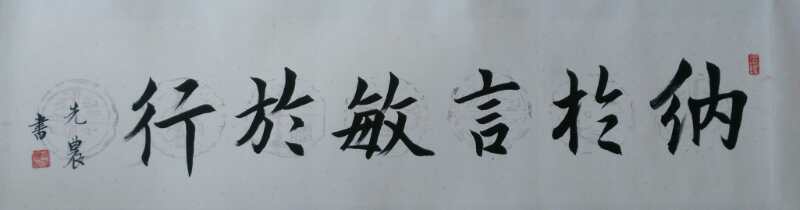 纳扵言敏於行
先農
書